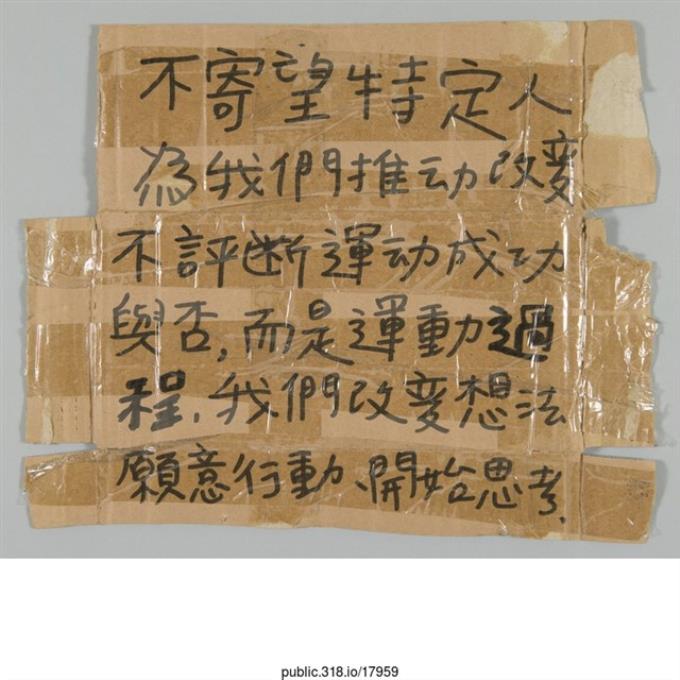 不寄望特定人
為我們推动改变
不評断運动成功
與否,而是運動過
程.我們改变想法
願意行動、開始思考.
public.318.io/17959